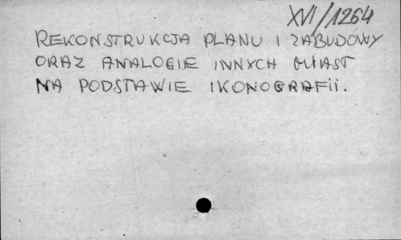 XVI/1264
REKONSTRUKCJA PLANU I ZABUDOWY
ORAZ ANALOGIE INNYCH MIAST
NA PODSTAWIE IKONOGRAFII.